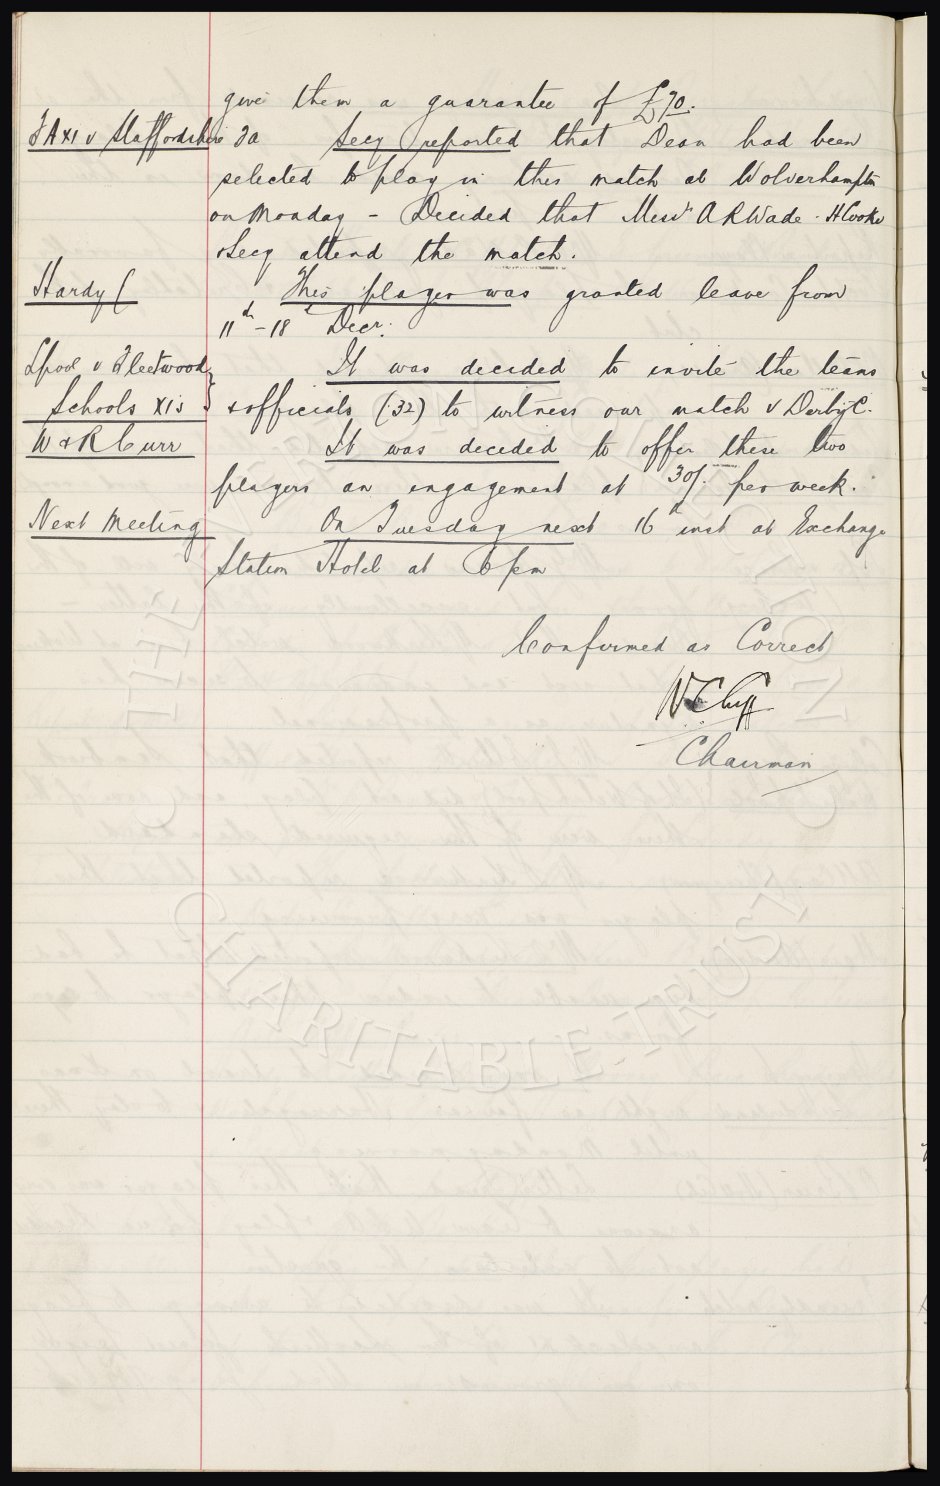 give them a guarantee of £70.
FA XI v Staffordshire Fa Secy reported that Dean had been
selected to play in this match at Wolverhampton
on Monday - Decided that Messrs A R Wade - H Cooke
& Secy attend the match.
Hardy C This player was granted leave from
11th - 18th Decr.
Lpool v Fleetwood It was decided to invite the teams
Schools XIs & officials (32) to witness our match v Derby C.
W & R Curr It was decided to offer these two
players an engagement at 30/- per week.
Next Meeting On Tuesday next 16th inst at Exchange
Station Hotel at 6 pm
Confirmed as Correct
W C Cuff
Chairman
THE EVERTON COLLECTION
CHARITABLE TRUST